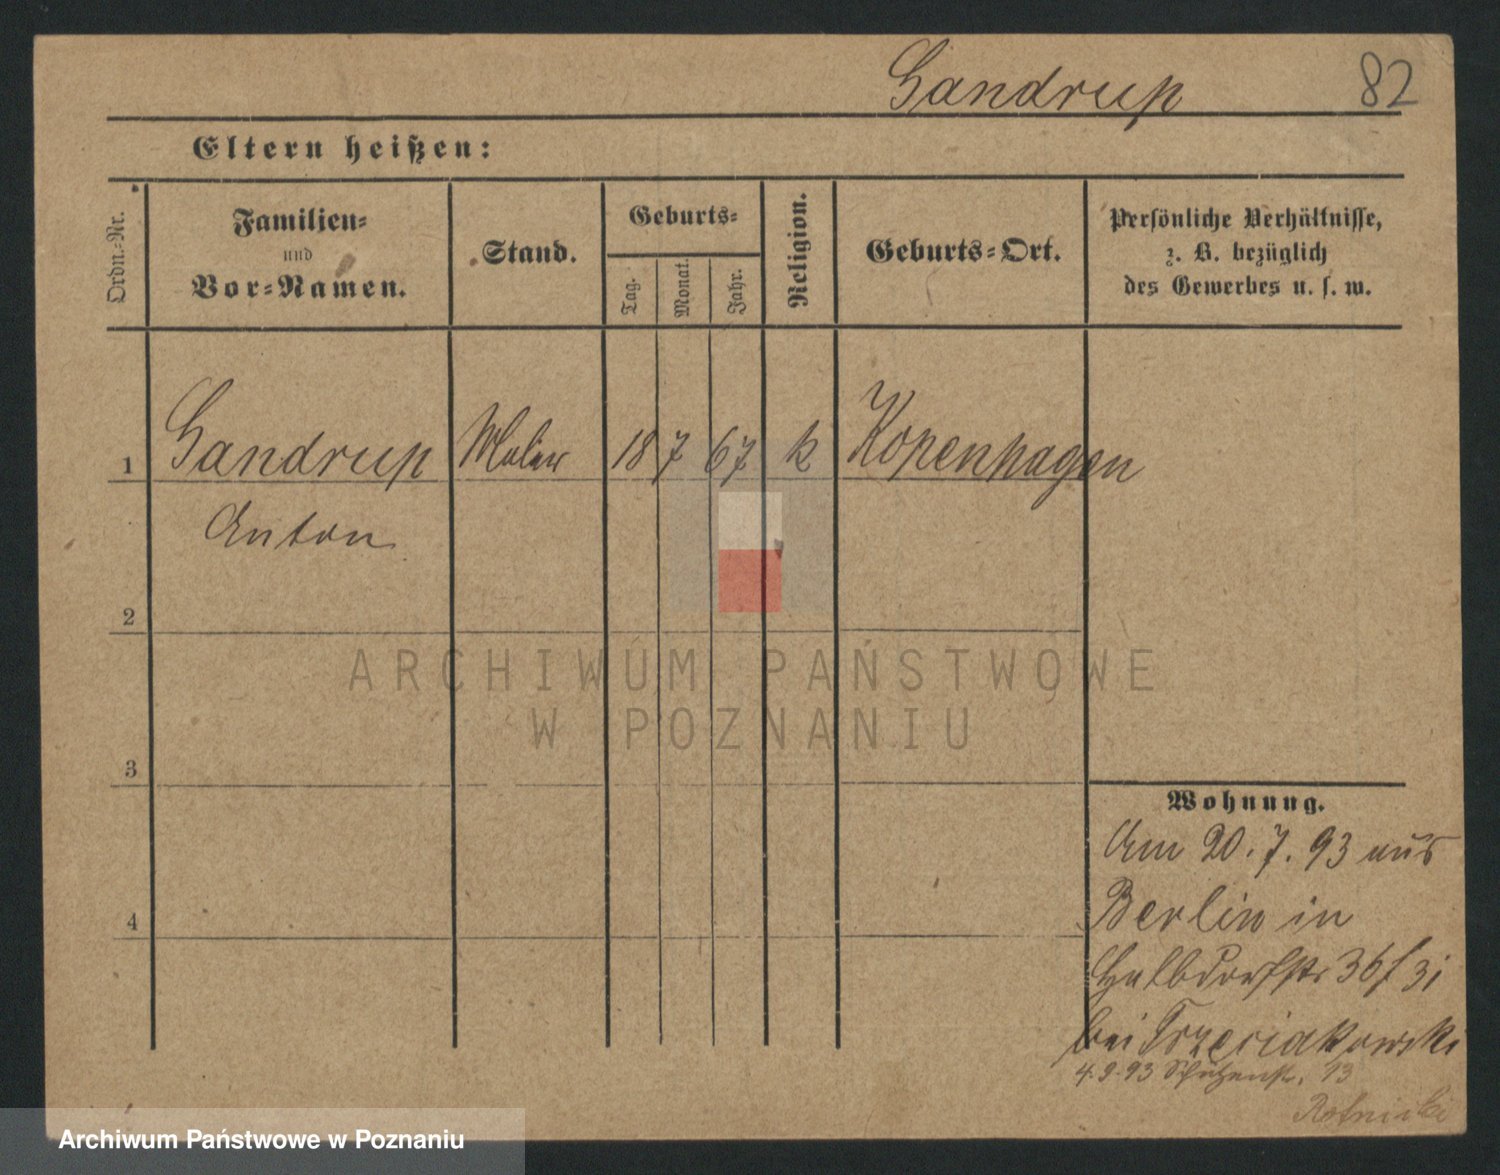 Sandrup 82
Eltern heißen:
Ordn.-Nr.
Familien-
und
Vor-Namen.
Stand.
Geburts-
Tag.
Monat.
Jahr.
Religion.
Geburts-Ort.
Persönliche Verhältnisse,
z. B. bezüglich
des Gewerbes u. s. w.
1 Sandrup Maler 18 7 67 k Kopenhagen
Anton
2
3
4
Wohnung.
Am 20. 7. 93 aus
Berlin in
Halbdorfstr 36/31
bei Trzeciakowski
4.9.93 Schützenstr. 13
Rotnicki
ARCHIWUM PAŃSTWOWE
W POZNANIU
Archiwum Państwowe w Poznaniu